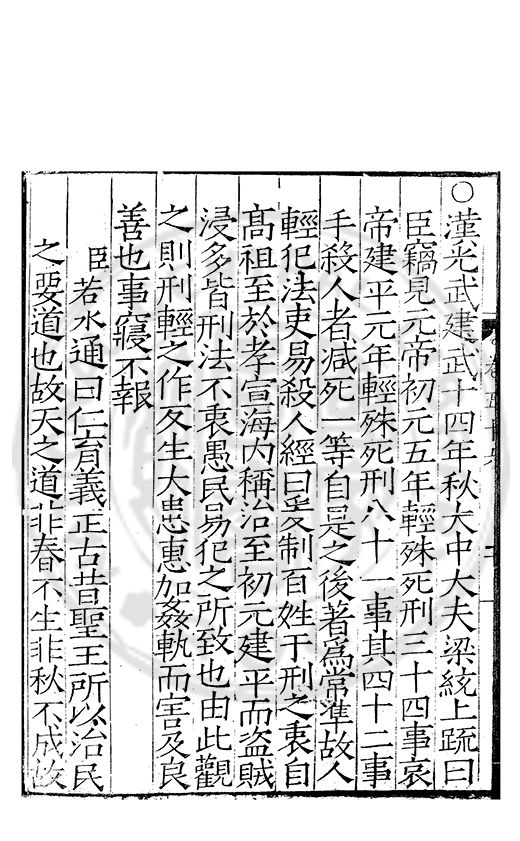 ○漢光武建武十四年秋大中大夫梁統上䟽曰
臣竊見元帝初元五年輕殊死刑三十四事哀
帝建平元年輕殊死刑八十一事其四十二事
手殺人者减死一等自是之後著爲常準故人
輕犯法吏易殺人經曰爰制百姓于刑之衷自
髙祖至於孝宣海内稱治至初元建平而盗賊
浸多皆刑法不衷愚民易犯之所致也由此觀
之則刑輕之作反生大患惠加姦軌而害及良
善也事寢不報
臣若水通曰仁育義正古昔聖王所以治民
之要道也故天之道非春不生非秋不成故